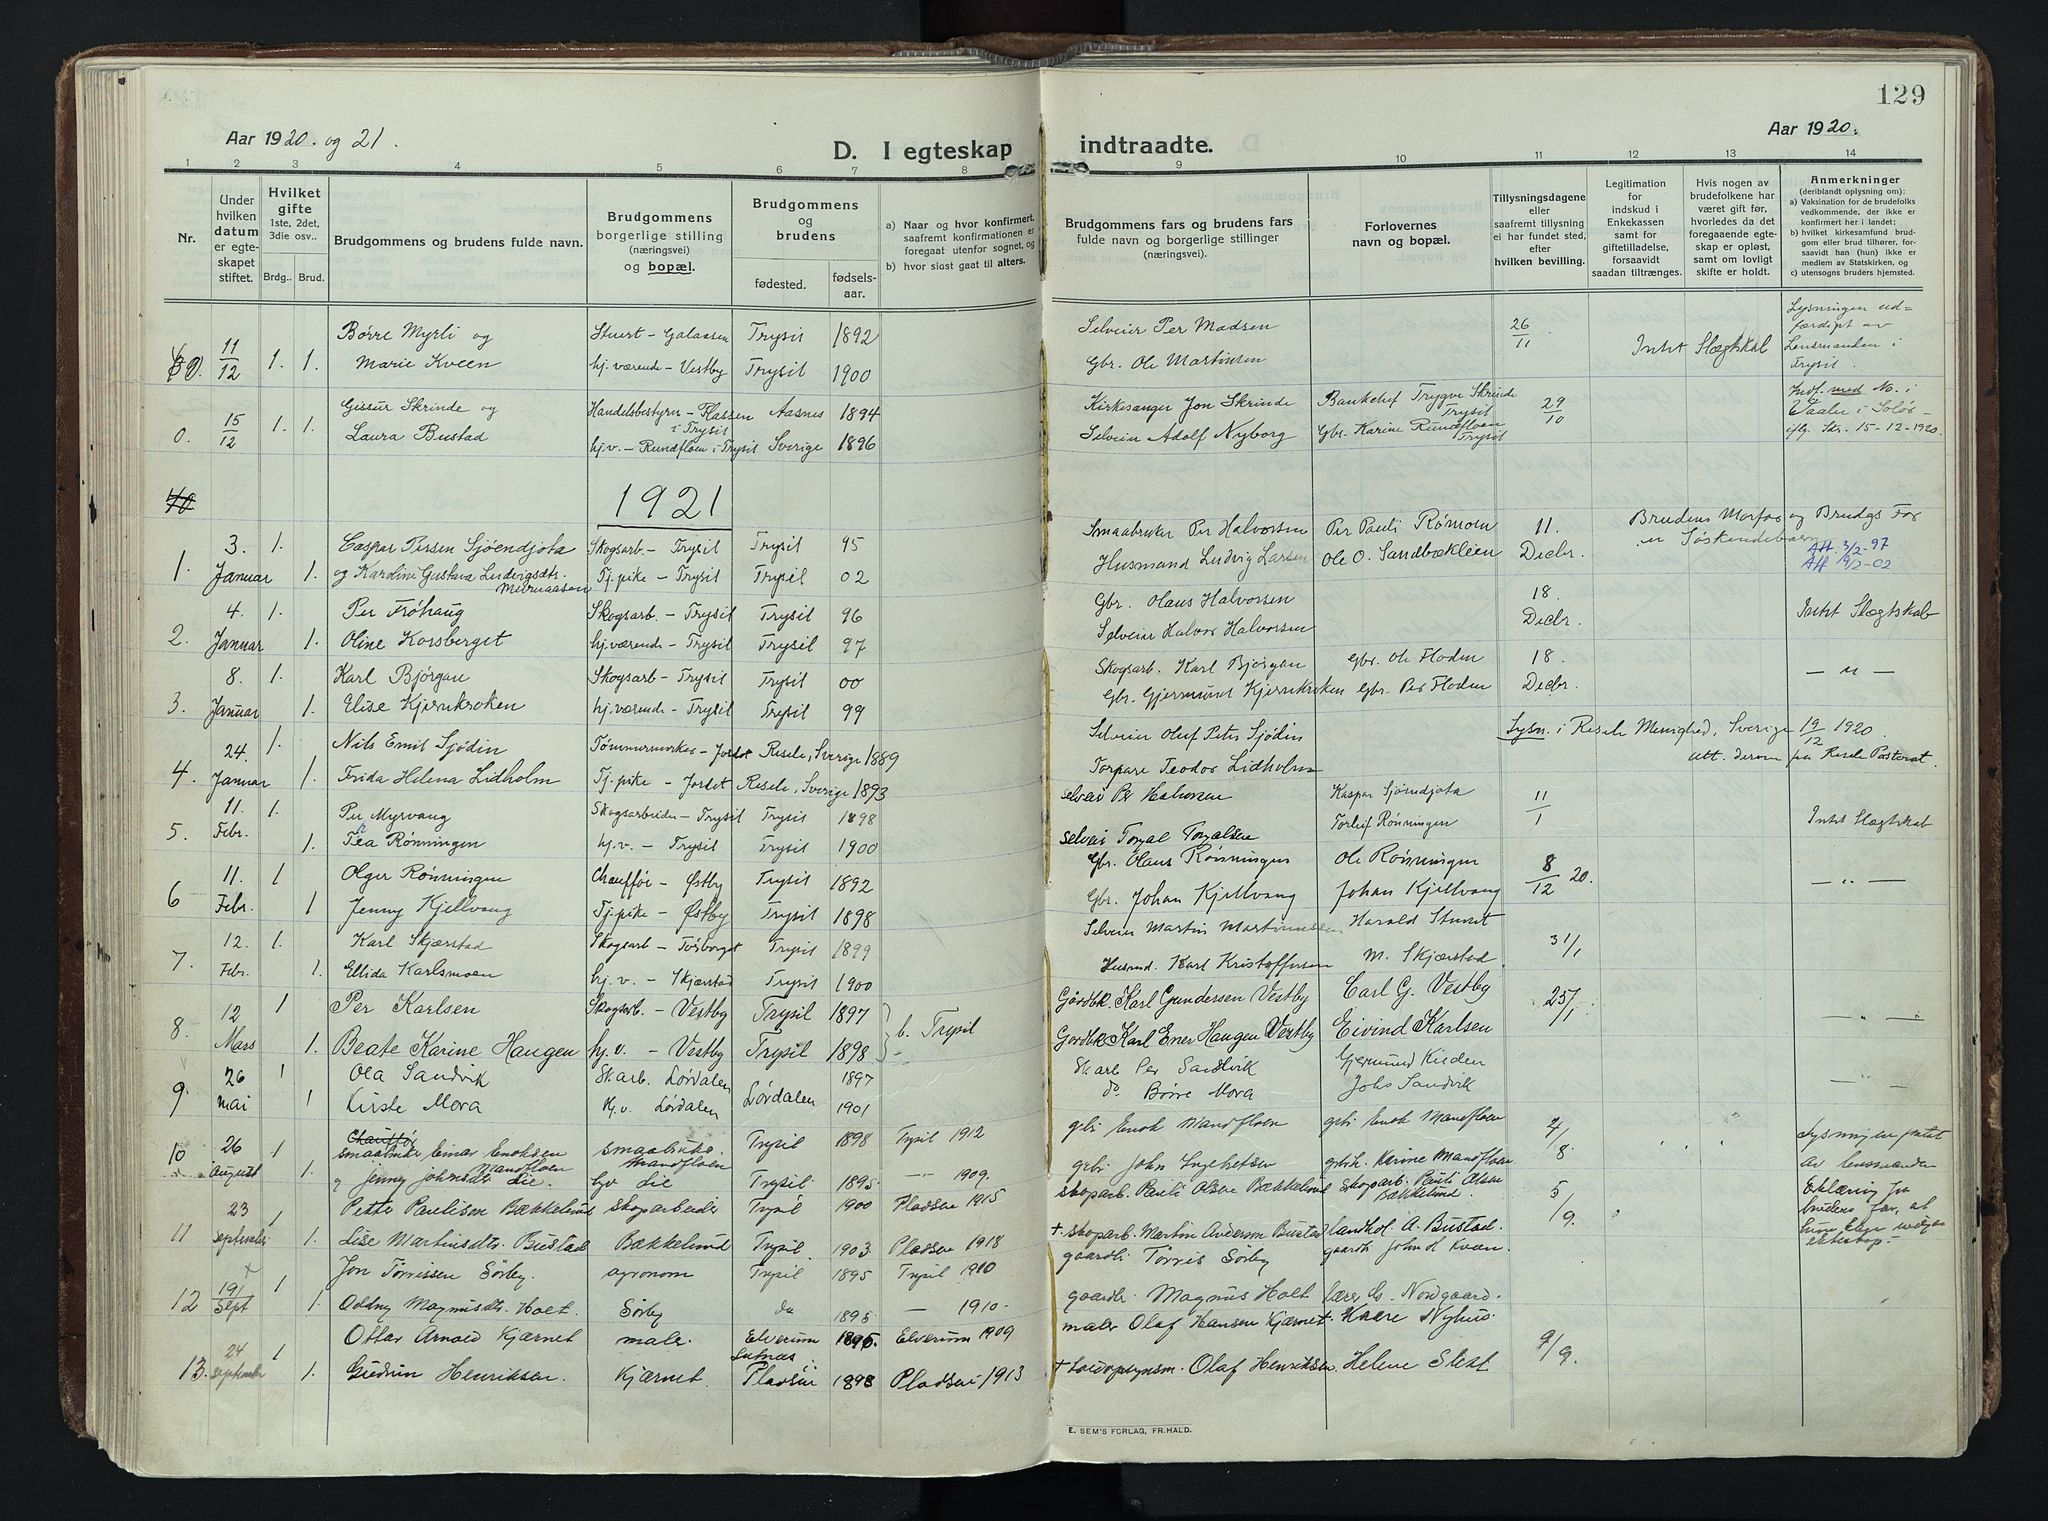 129
Aar 1920. og 21.
D. I egteskap indtraadte.
Aar 1920.
1 2 3 4 5 6 7 8 9 10 11 12 13 14
Nr.
Under hvilken datum er egteskapet stiftet.
Hvilket gifte
1ste, 2det, 3die osv..
Brdg.. Brud.
Brudgommens og brudens fulde navn.
Brudgommens borgerlige stilling (næringsvei) og bopæl.
Brudgommens og brudens
fødested. fødselsaar.
a) Naar og hvor konfirmert, saafremt konfirmationen er foregaat utenfor sognet, og
b) hvor sisst gaat til alters.
Brudgommens fars og brudens fars fulde navn og borgerlige stillinger (næringsvei).
Forlovernes navn og bopæl.
Tillysningsdagene eller saafremt tillysning ei har fundet sted, efter hvilken bevilling.
Legitimation for indskud i Enkekassen samt for giftetilladelse, forsaavidt saadan tiltrænges.
Hvis nogen av brudefolkene har været gift før, hvorledes da det foregaaende egteskap er opløst, samt om lovligt skifte er holdt.
Anmerkninger
(deriblandt oplysning om):
a) Vaksination for de brudefolks vedkommende, der ikke er konfirmert her i landet;
b) hvilket kirkesamfund brudgom eller brud tilhører, forsaavidt han (hun) ikke er medlem av Statskirken, og
c) utensogns bruders hjemsted.
11/12 1. Børre Myrli og Stuert - Galaasen Trysil 1892 Selveier Per Madsen 26/11 Intet Slægtskab Lysningen udfærdiget av Lensmanden i Trysil.
1. Marie Kveen hj. værende - Vestby Trysil 1900 Gbr. Ole Martinsen
0. 15/12 1. Gissur Skrinde og Handelsbestyrer - Plassen i Trysil Aasnes 1894 Kirkesanger Jon Skrinde Bankchef Trygve Skrinde Trysil 29/10 Indf. med No. i Vaaler i Solør - iflg. Skr. 15-12-1920.
1. Laura Bustad hj.v. - Rundfloen i Trysil Sverige 1896 Selveier Adolf Nyborg Gbr. Karine Rundfloen Trysil
1921
1. 3. Januar 1. Caspar Persen Sjøendjota Skogsarb. - Trysil Trysil 95 Smaabruker Per Halvorsen Per Pauli Rømoen 11. Decbr. Brudens Morfar og Brudgs Far er Søskendebarn
1. og Karoline Gustava Ludvigsdtr. Tj.pike - Trysil Trysil 02 Husmand Ludvig Larsen Ole O. Sandbækleien Att. 3/2-97 Att 19/2-02
2. 4. Januar 1. Per Frøhaug Skogsarb - Trysil Trysil 96 Gbr. Olaus Halvorsen 18. Decbr. Intet Slægtskab
1. Oline Korsberget hj.værende - Trysil Trysil 97 Selveier Halvor Halvorsen
3. 8. Januar 1. Karl Bjørgan Skogsarb - Trysil Trysil 00 Skogsarb. Karl Bjørgan Gbr. Ole Floden 18. Decbr. - " -
1. Elise Kjernkroken hj.værende - Trysil 99 Gbr. Gjermund Kjernkroken Gbr. Per Floden
4. 24. Januar 1. Nils Emil Sjødin Tømmermerker - Jordet Resele, Sverige 1889 Selveier Oluf Peter Sjødin Lysn. i Resele Menighed, Sverige 19/12 1920.
1. Frida Helena Lidholm Tj.pike - Jordet Resele, Sverige 1893 Torpare Teodor Lidholm Att. derom fra Resele Pastorat.
5. 11. Febr. 1. Per Myrvang Skogsarbeider - Trysil Trysil 1898 Selvei Per Halvorsen Kaspar Sjøendjota 11/1 Intet Slægtskab
1. Tea Rønningen hj.v. - Trysil Trysil 1900 Selvei Torgal Torgalsen Torleif Rønningen
6 11. Febr. 1 Olger Rønningen Chauffør - Østby Trysil 1892 Gbr. Olaus Rønningen Ole Rønningen 8/12 20. - " -
1 Jenny Kjellvang Tj.pike - Østby Trysil 1898 Gbr. Johan Kjellvang Johan Kjellvang
7. 12. Febr. 1. Karl Skjærstad Skogsarb - Torberget Trysil 1899 Selveier Martin Martinussen Harald Sturet 31/1
1. Ellida Karlsmoen hj.v. - Skjærstad Trysil 1900 Husmd. Karl Kristoffersen M. Skjærstad
8. 12 Mars 1 Per Karlsen Skogsarb. - Vestby Trysil 1897 b. Trysil Gårdbk. Karl Gundersen Vestby Carl G. Vestby 25/1 - " -
1. Beate Karine Haugen hj.v. - Vestby Trysil 1898 Gårdbk Karl Ener Haugen Vestby Eivind Karlsen
9. 26 Mai 1 Ola Sandvik Sk.arb. Lørdalen Lørdalen 1897 Sk.arb Per Sandvik Gjermund Kilden - " -
1 Kirste Mora Hj.v. Lørdalen 1901 do Børre Mora Johs Sandvik
10 26 August 1 smaabruker Einar Enoksen Mandfloen smaabruk. Mandfloen Trysil 1898 Trysil 1912 gbr. Enok Mandfloen gbr. Enok Mandfloen 4/8. Lysningen foretat av lensmanden
1. og Jenny Johnsdtr Lie. hv Lie Trysil 1895 - 1909. gbr. John Ingebretsen gbrk. Karine Mandfloen
11 23 September 1 Petter Paulisen Bækkelund skogarbeider Trysil 1900 Pladsen 1915 skogarb. Pauli Olsen Bækkelund Skogarb. Pauli Olsen Bækkelund. 5/9. Erklæring fra brudens far, at
1. Lise Martinsdtr. Bustad Bækkelund Trysil 1903. Pladsen 1918 + skogarb. Martin Anderson Bustad landhdl. A. Bustad.
12 19/Sept 1 Jon Tørrissen Sørby. agronom Trysil 1895 Trysil 1910 gaardb. Tørris Sørby gaardb John d Kveen
1. Oddny Magnusdtr. Holt. Sørby do 1895 - 1910. gaardbr. Magnus Holt lærer Nordgaard.
13. 24 September 1 Ottar Arnold Kjærnet maler Elverum 1895. Elverum 1909 maler Olaf Hansen Kjærnet Kaare Nyhus. 9/9.
1. Gudrun Henriksen. Kjærnet. Pladsen 1898 Pladsen 1913 + Olaf Henriksen. Helene Stext
E. SEM'S FORLAG, FR.HALD.